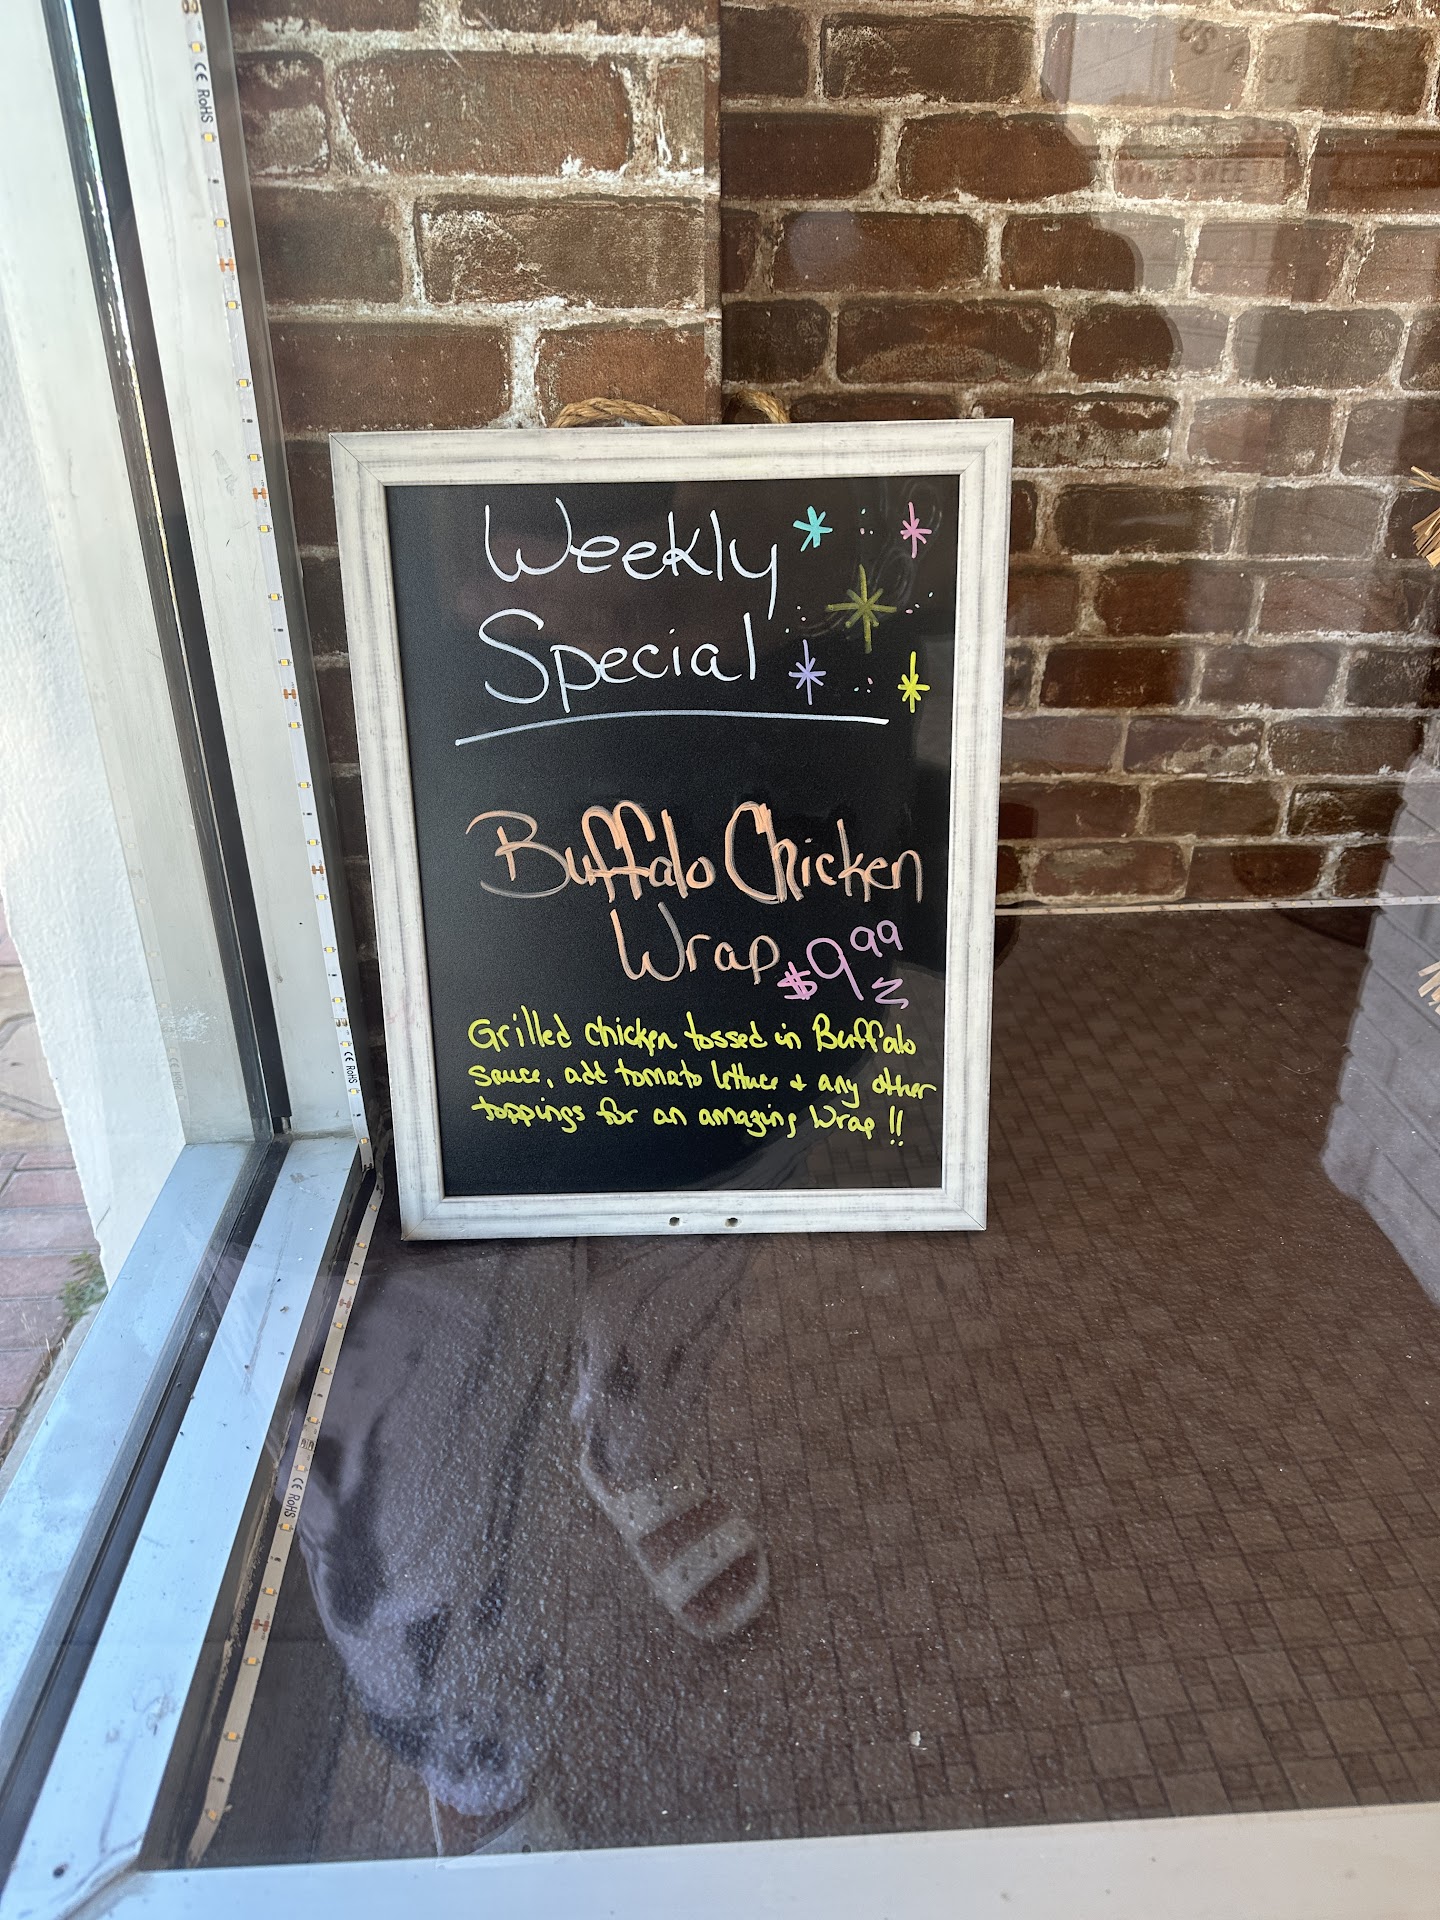 Weekly
Special
Buffalo Chicken
Wrap $9.99
Grilled chicken tossed in Buffalo
sauce, add tomato lettuce + any other
toppings for an amazing Wrap !!
CE RoHS
CE RoHS
CE RoHS